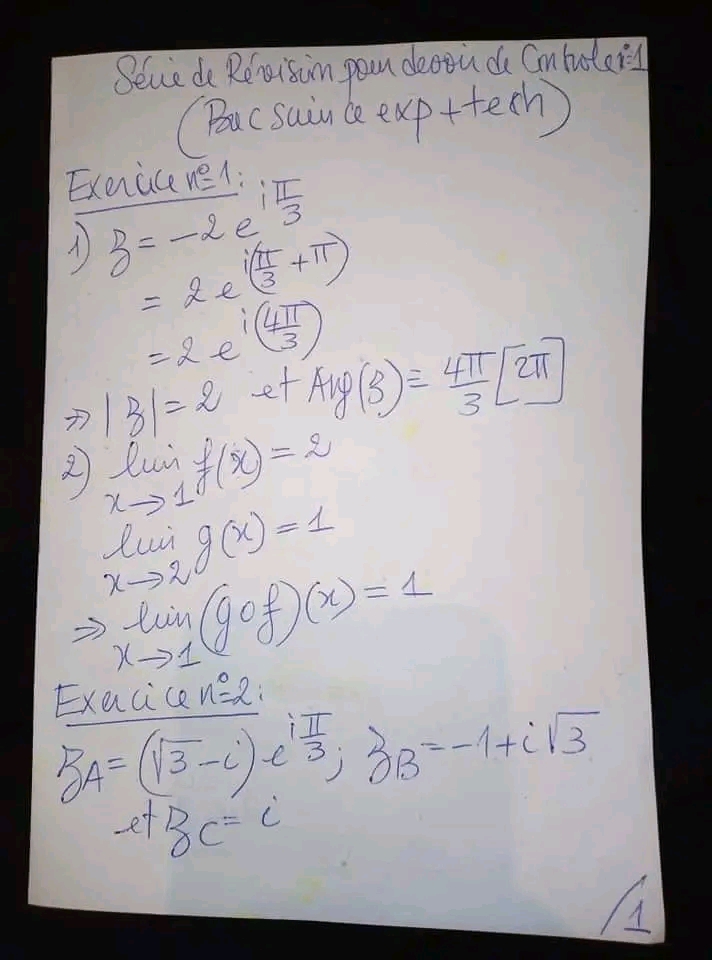 Série de Révision pour devoir de Controle n°1
(Bac science exp + tech)
Exercice n°1:
1) z = -2 e^{i π/3}
= 2 e^{i(π/3 + π)}
= 2 e^{i(4π/3)}
⇒ |z| = 2 et Arg(z) ≡ 4π/3 [2π]
2) lim f(x) = 2
x→1
lim g(x) = 1
x→2
⇒ lim (g∘f)(x) = 1
x→1
Exercice n°2:
z_A = (√3 - i) e^{i π/3} ; z_B = -1 + i√3
et z_C = i
/1